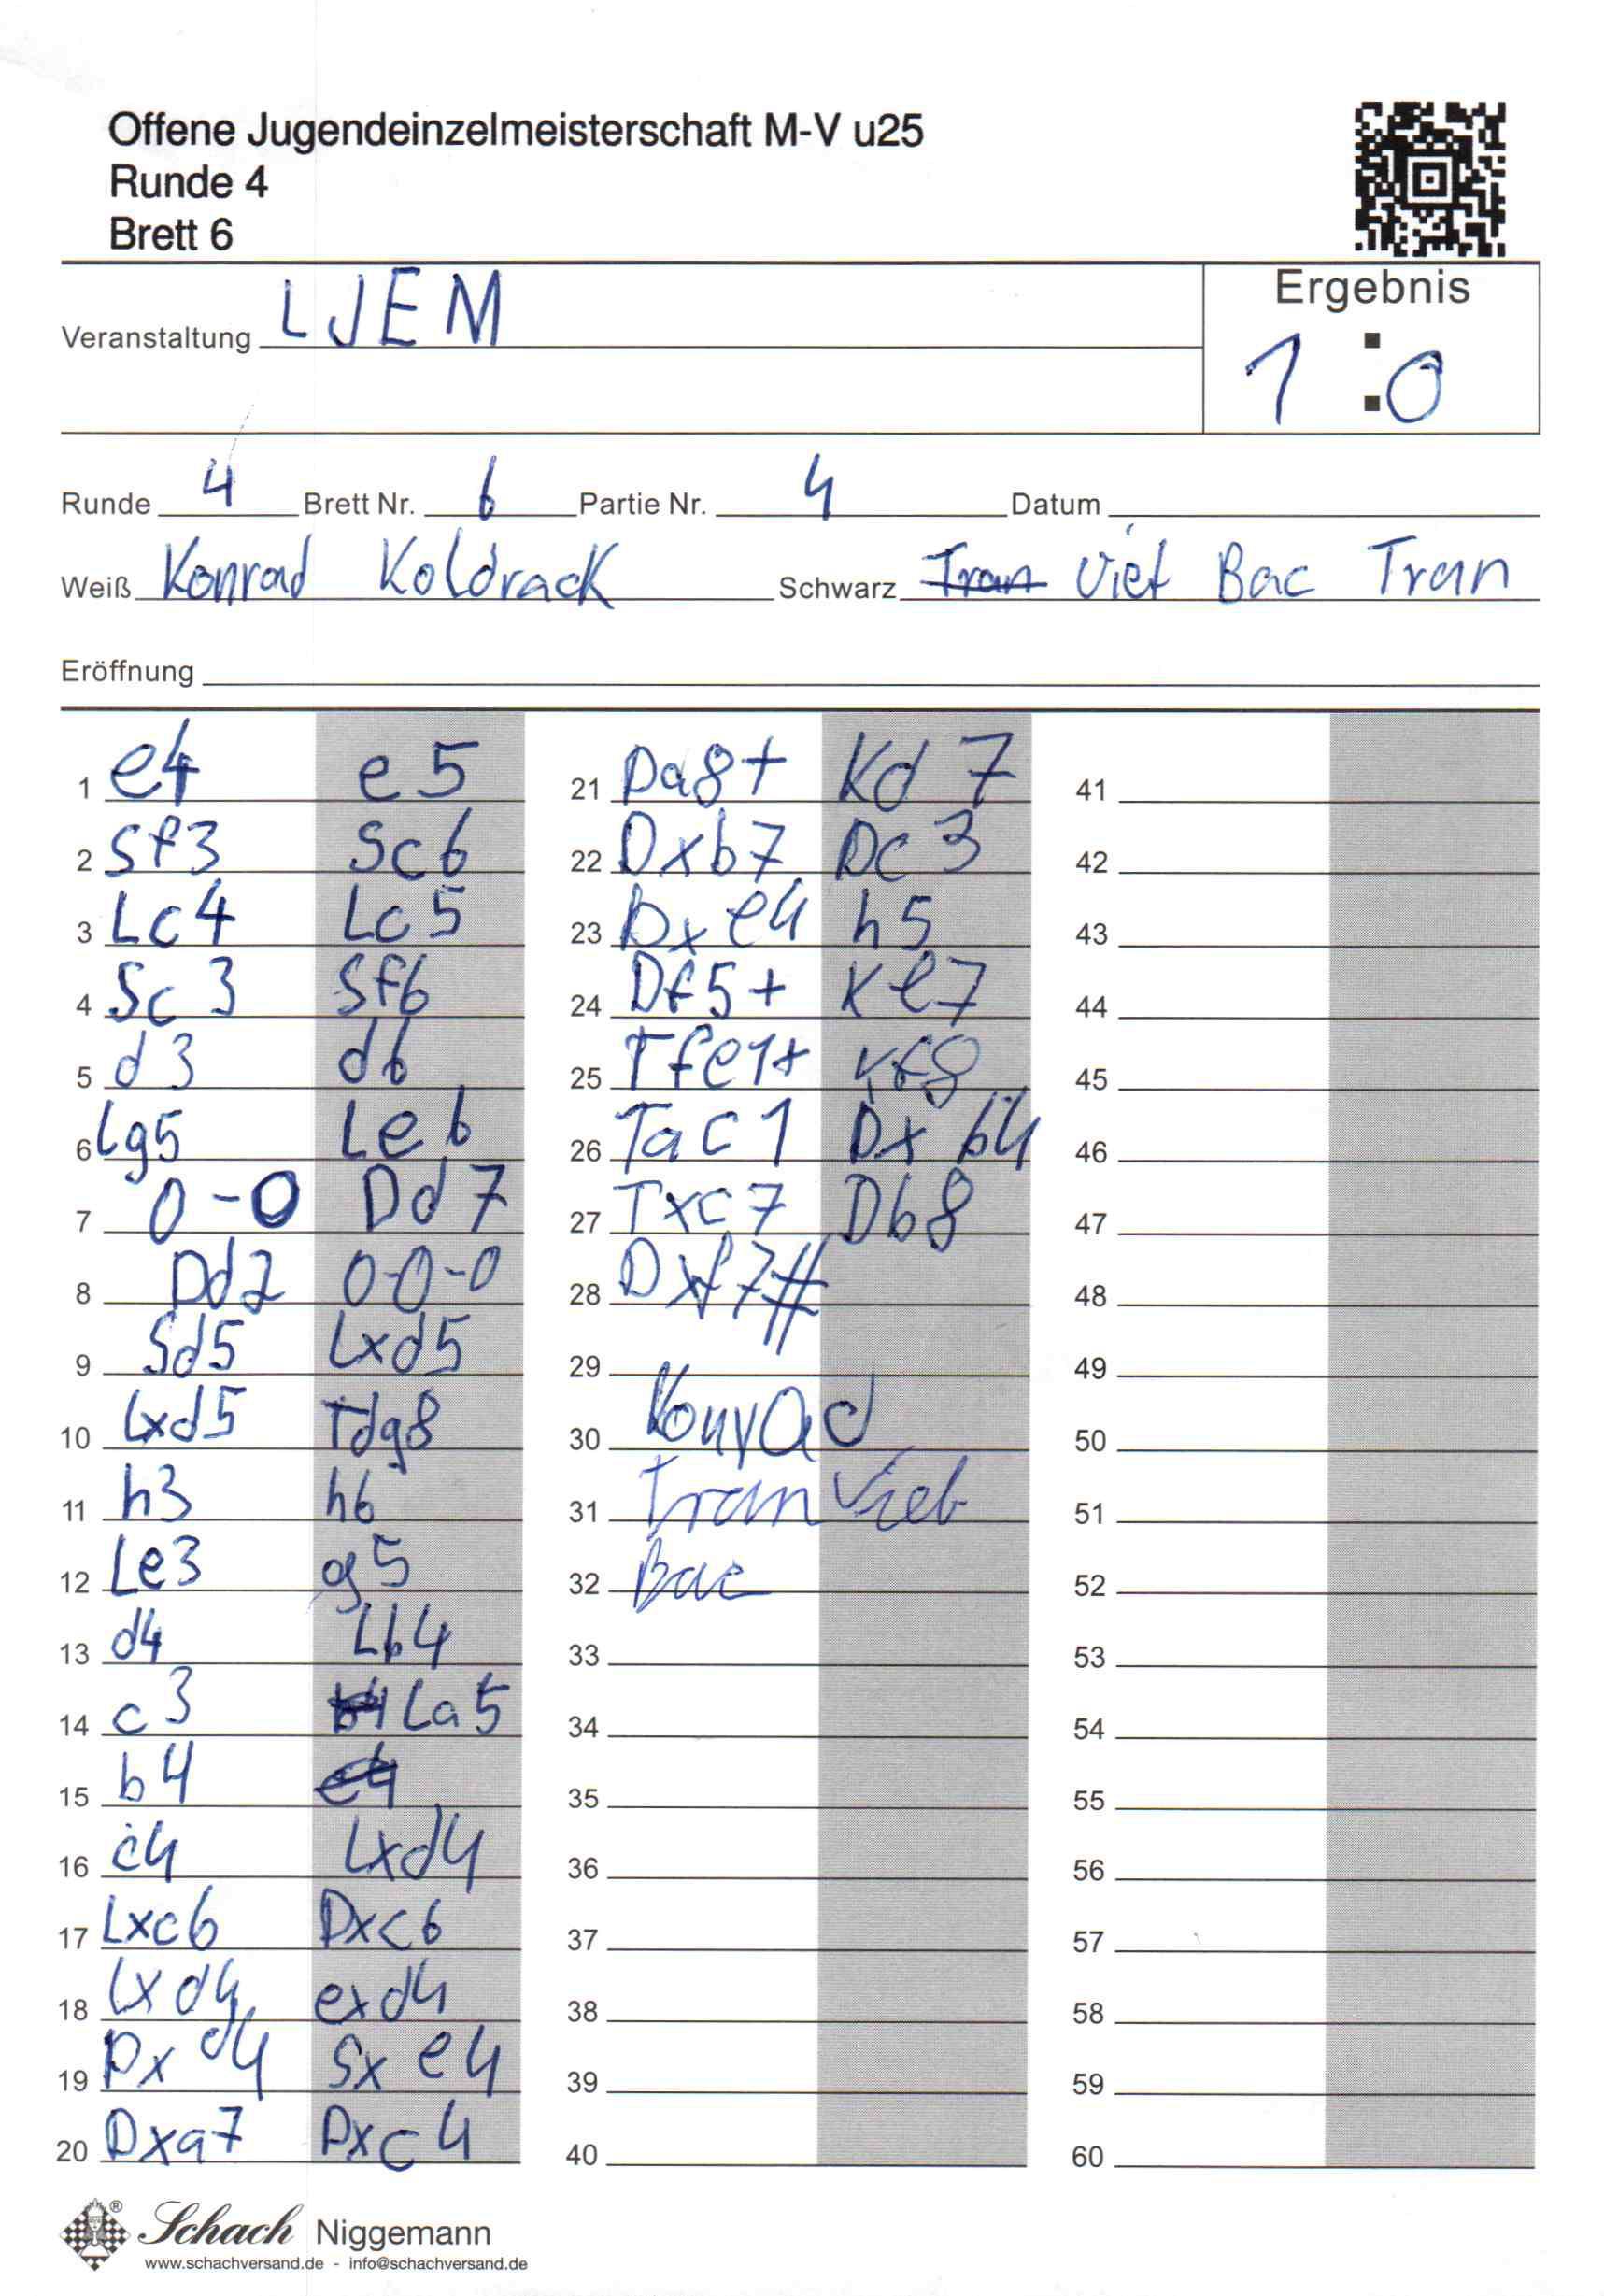 Offene Jugendeinzelmeisterschaft M-V u25
Runde 4
Brett 6
Veranstaltung LJEM
Ergebnis
1 : 0
Runde 4 Brett Nr. 6 Partie Nr. 4 Datum
Weiß Konrad Koldrack Schwarz Tran Viet Bac Tran
Eröffnung
1 e4 e5
2 Sf3 Sc6
3 Lc4 Lc5
4 Sc3 Sf6
5 d3 d6
6 Lg5 Le6
7 0-0 Dd7
8 Dd2 0-0-0
9 Sd5 Lxd5
10 Lxd5 Tdg8
11 h3 h6
12 Le3 g5
13 d4 Lb4
14 c3 La5
15 b4
16 c4 Lxd4
17 Lxc6 Dxc6
18 Lxd4 exd4
19 Dxd4 Sxe4
20 Dxa7 Dxc4
21 Da8+ Kd7
22 Dxb7 Dc3
23 Dxe4 h5
24 Df5+ Ke7
25 Tfe1+ Kf8
26 Tac1 Dxb4
27 Txc7 Db8
28 Dxf7#
29
30 Konrad
31 Tran Viet
32 Bac
33
34
35
36
37
38
39
40
41
42
43
44
45
46
47
48
49
50
51
52
53
54
55
56
57
58
59
60
Schach Niggemann
www.schachversand.de - info@schachversand.de